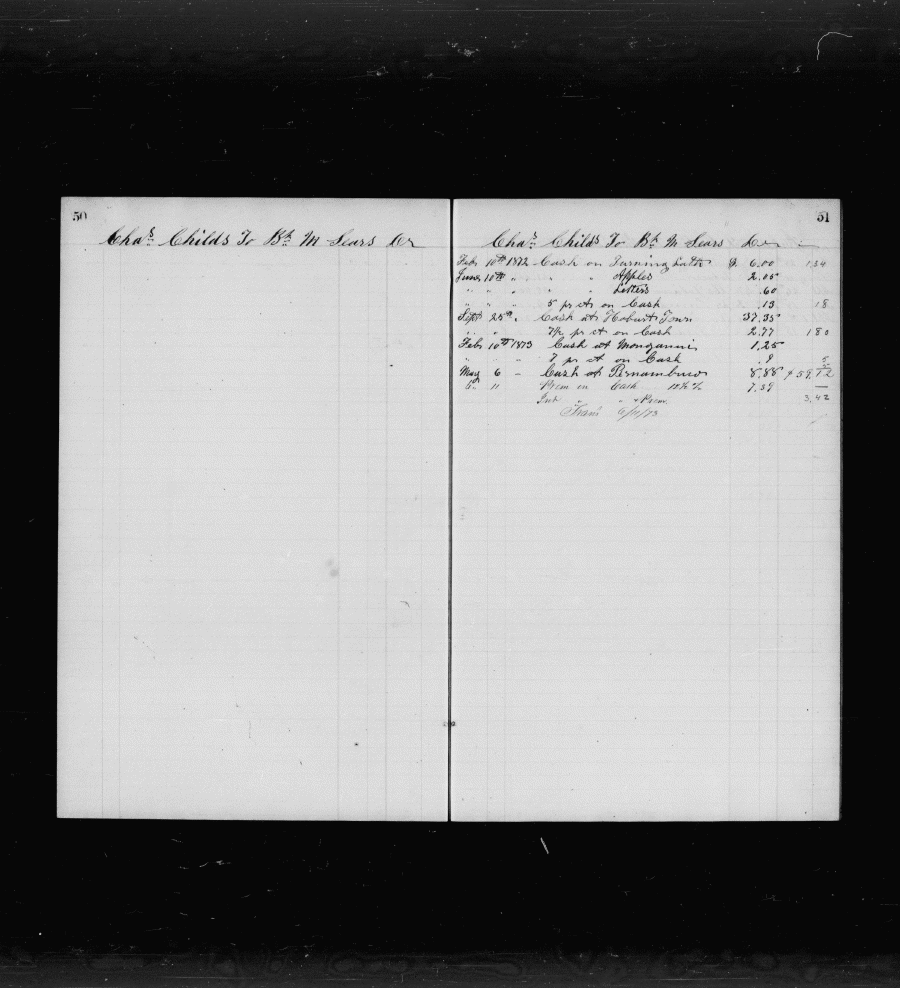 50
Chas Childs To Bk M Sears Cr
51
Chas Childs To Bk M Sears Dr
Feb 10th 1872 Cash on Turning Lathe $ 6.00 1 34
June 10th " " " Apples 2.05
" " " " " Letters .60
" " " 5 pr ct on Cash .13 18
Sept 25th " Cash at Hobart Town 37.35
" " " 7½ pr ct on Cash 2.77 1 80
Feb 10th 1873 Cash at 1.25
" " " 7 pr ct on Cash .9 5
May 6 " Cash at Pernambuco 8.88 59.12
" 11 Prem on Cash 7.59
Int " " + Prem 3.42
Trans 6/11/73